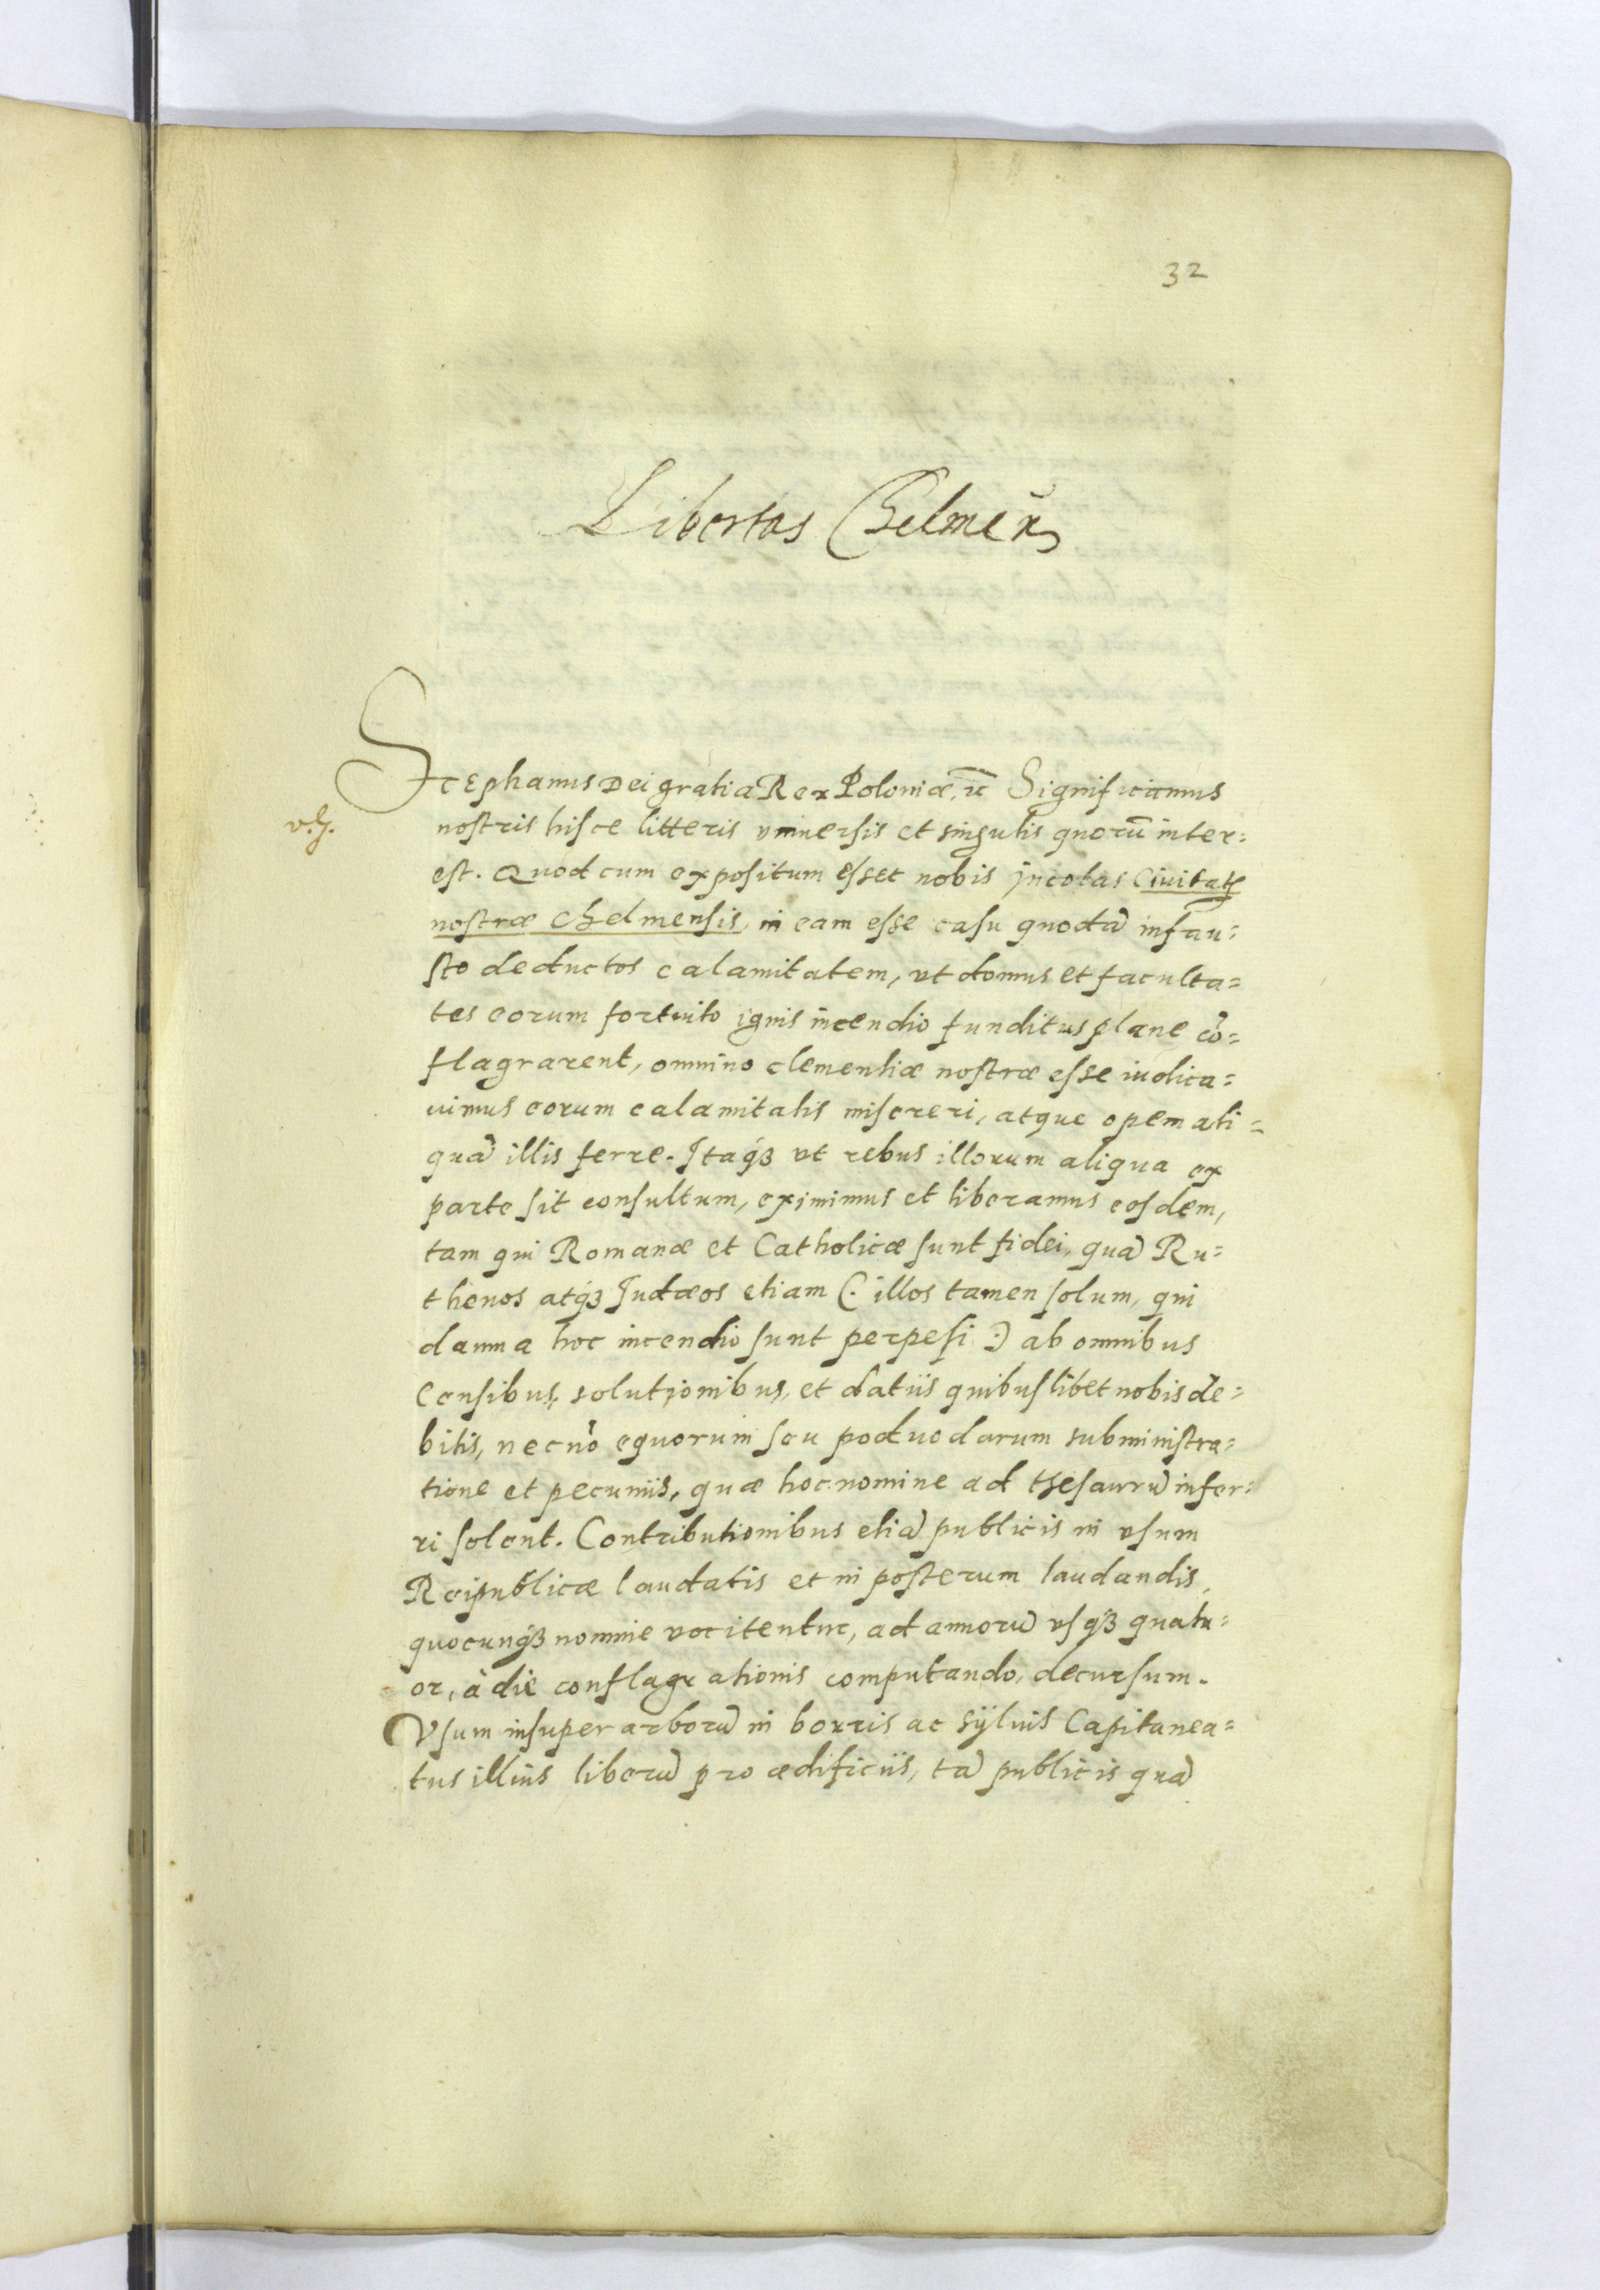 32
Libertas Chelmeñ
Stephanus Dei gratia Rex Poloniæ, ꝛc Significamus
nostris hisce litteris vniuersis et singulis quorū inter=
est. Quod cum expositum esset nobis incolas Ciuitatis
nostræ Chelmensis, in eam esse casu quodā infau=
sto deductos calamitatem, vt domus et faculta=
tes eorum fortuito ignis incendio funditus plane cō=
flagrarent, omnino clementiæ nostræ esse iudica=
uimus eorum calamitatis misereri, atque opem ali=
quā illis ferre. Itaqꝫ vt rebus illorum aliqua ex
parte sit consultum, eximimus et liberamus eosdem,
tam qui Romanæ et Catholicæ sunt fidei, quā Ru=
thenos atqꝫ Iudæos etiam (: illos tamen solum, qui
damna hoc incendio sunt perpessi :) ab omnibus
Censibus, solutionibus, et datiis quibuslibet nobis de=
bitis, necnō equorum seu poduodarum subministra=
tione et pecuniis, quæ hoc nomine ad thesaurū infer=
ri solent. Contributionibus etiā publicis in vsum
Reipublicæ laudatis et in posterum laudandis,
quocunqꝫ nomine vocitentur, ad annorū vsqꝫ quatu=
or, à die conflagrationis computando, decursum.
Vsum insuper arborū in borris ac syluis Capitanea=
tus illius liberū pro ædificiis, tā publicis quā